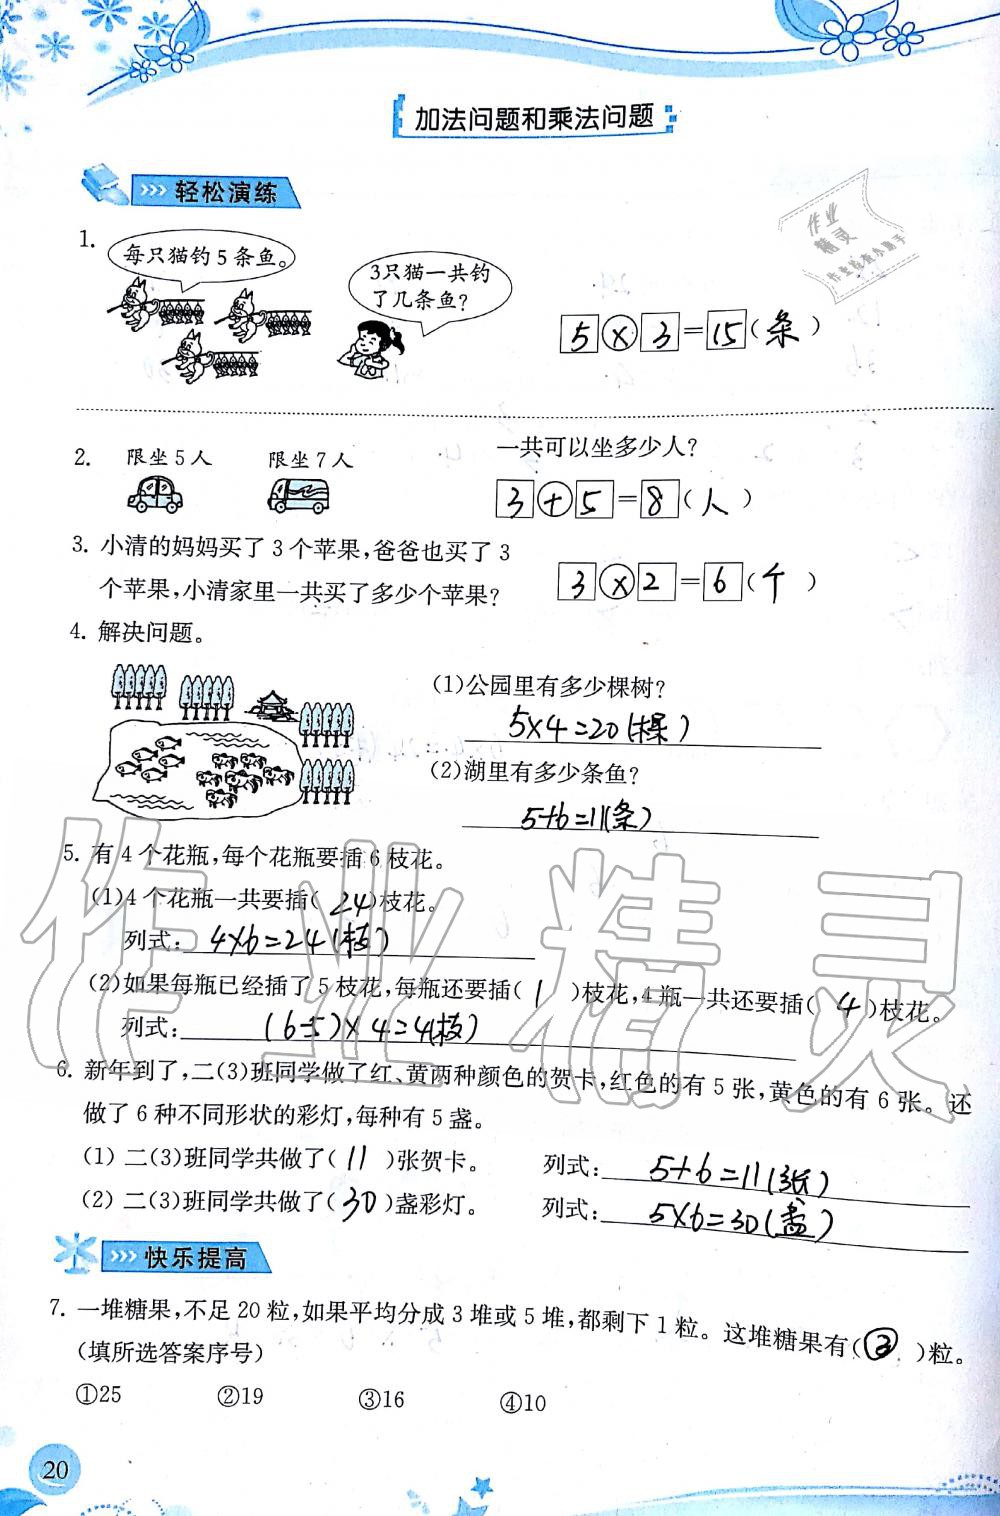 加法问题和乘法问题
>>> 轻松演练
1. 每只猫钓5条鱼。
3只猫一共钓
了几条鱼?
5×3=15(条)
作业
精灵
作业检查小助手
2. 限坐5人 限坐7人 一共可以坐多少人?
3+5=8(人)
3. 小清的妈妈买了3个苹果,爸爸也买了3
个苹果,小清家里一共买了多少个苹果?
3×2=6(个)
4. 解决问题。
(1)公园里有多少棵树?
5×4=20(棵)
(2)湖里有多少条鱼?
5+6=11(条)
5. 有4个花瓶,每个花瓶要插6枝花。
(1)4个花瓶一共要插(24)枝花。
列式: 4×6=24(枝)
(2)如果每瓶已经插了5枝花,每瓶还要插(1)枝花,4瓶一共还要插(4)枝花。
列式: (6-5)×4=4(枝)
作业精灵
6. 新年到了,二(3)班同学做了红、黄两种颜色的贺卡,红色的有5张,黄色的有6张。还
做了6种不同形状的彩灯,每种有5盏。
(1) 二(3)班同学共做了(11)张贺卡。 列式: 5+6=11(张)
(2) 二(3)班同学共做了(30)盏彩灯。 列式: 5×6=30(盏)
>>> 快乐提高
7. 一堆糖果,不足20粒,如果平均分成3堆或5堆,都剩下1粒。这堆糖果有(③)粒。
(填所选答案序号)
①25 ②19 ③16 ④10
20